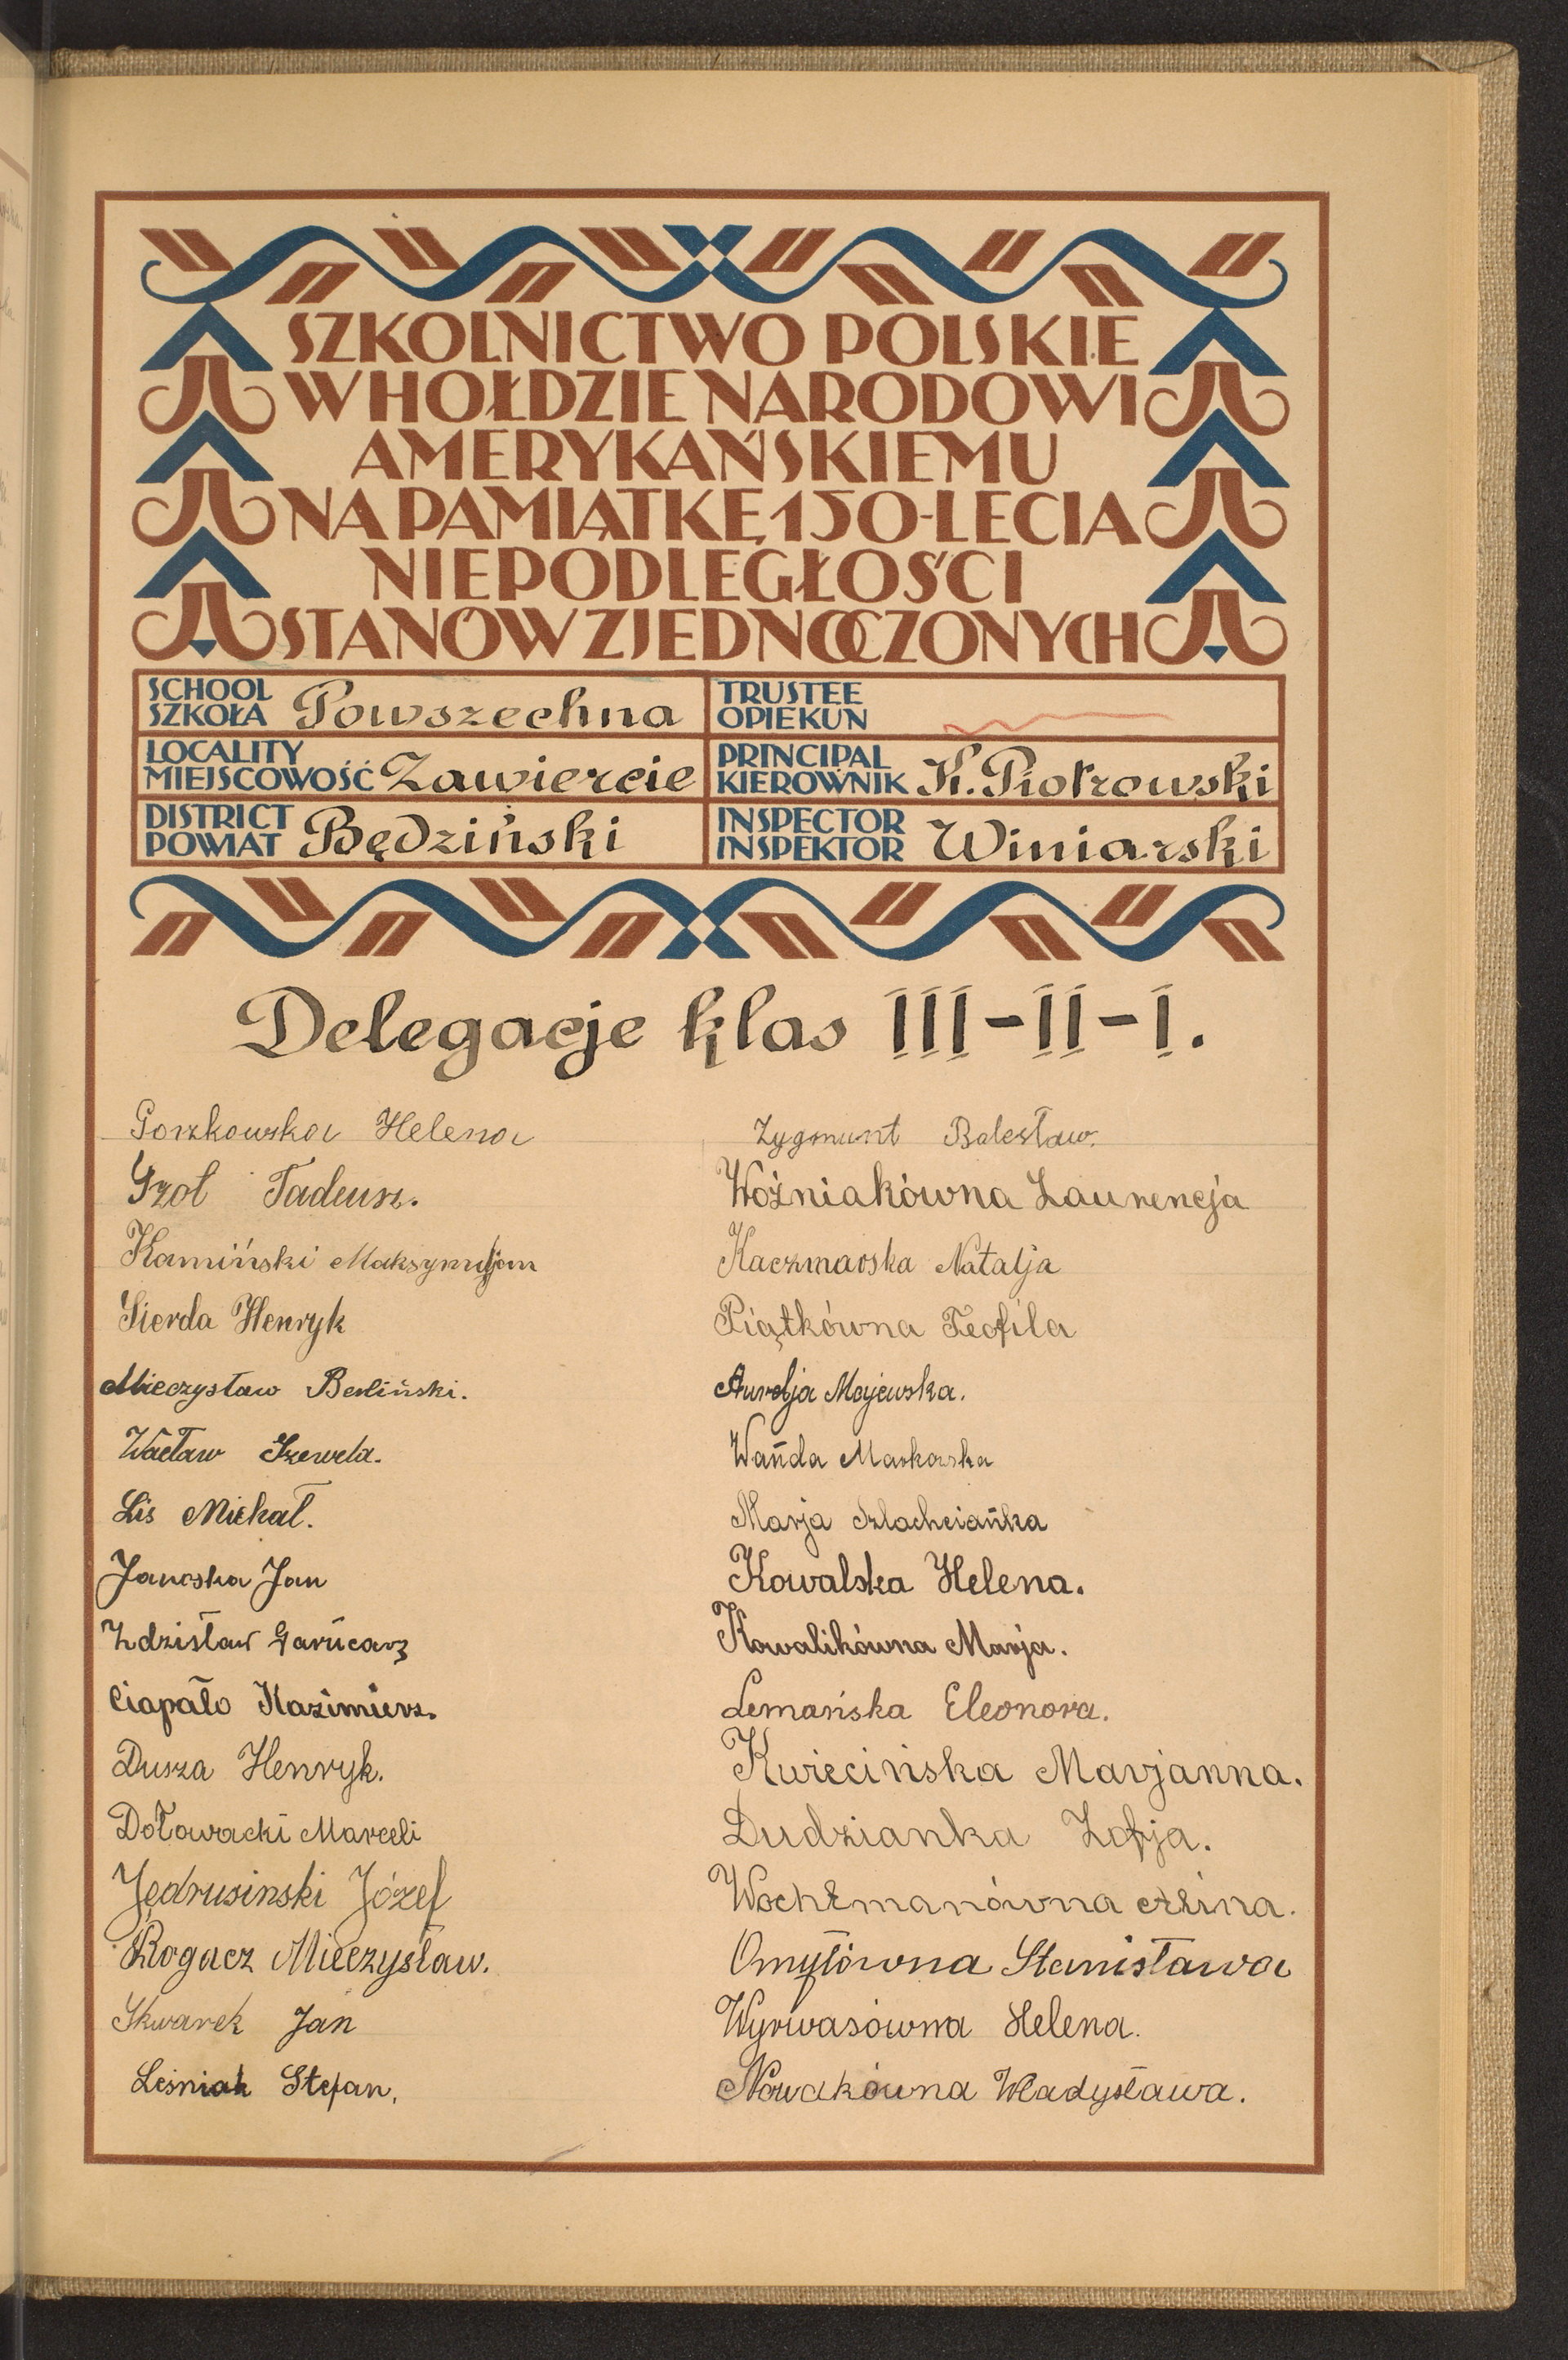 SZKOLNICTWO POLSKIE
W HOŁDZIE NARODOWI
AMERYKAŃSKIEMU
NA PAMIĄTKĘ 150-LECIA
NIEPODLEGŁOŚCI
STANÓW ZJEDNOCZONYCH
SCHOOL
SZKOŁA Powszechna
TRUSTEE
OPIEKUN
LOCALITY
MIEJSCOWOŚĆ Zawiercie
PRINCIPAL
KIEROWNIK K. Piotrowski
DISTRICT
POWIAT Będziński
INSPECTOR
INSPEKTOR Winiarski
Delegacje klas III-II-I.
Helena
Tadeusz.
Kamiński Maksymiljan
Sierda Henryk
Mieczysław Berliński.
Wacław
Lis Michał.
Janoska Jan
Zdzisław Garncarz
Ciapało Kazimierz.
Dusza Henryk.
Dołowacki Marceli
Jędrusinski Józef
Rogacz Mieczysław.
Skwarek Jan
Leśniak Stefan.
Zygmunt Bolesław.
Woźniakówna Laurencja
Kaczmarska Natalja
Piątkówna Teofila
Aurelja Majewska.
Wanda Markowska
Marja Szlachcianka
Kowalska Helena.
Kowalikówna Marja.
Lemańska Eleonora.
Kwiecińska Marjanna.
Dudzianka Zofja.
Wochtmanówna
Omyłówna Stanisława
Wyrwasówna Helena.
Nowakówna Władysława.